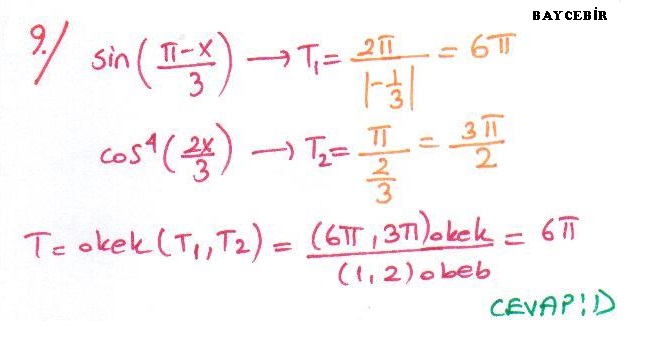 BAYCEBİR
9./ sin((π-x)/3) → T₁= 2π/|-1/3| = 6π
cos⁴(2x/3) → T₂= π/(2/3) = 3π/2
T= okek(T₁,T₂) = (6π,3π)okek/(1,2)obeb = 6π
CEVAP:D